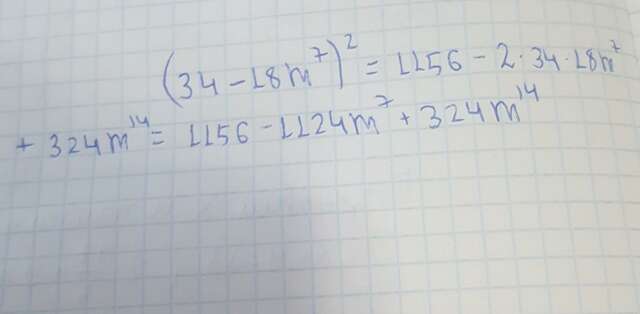 (34 - 18m⁷)² = 1156 - 2·34·18m⁷
+ 324m¹⁴ = 1156 - 1124m⁷ + 324m¹⁴